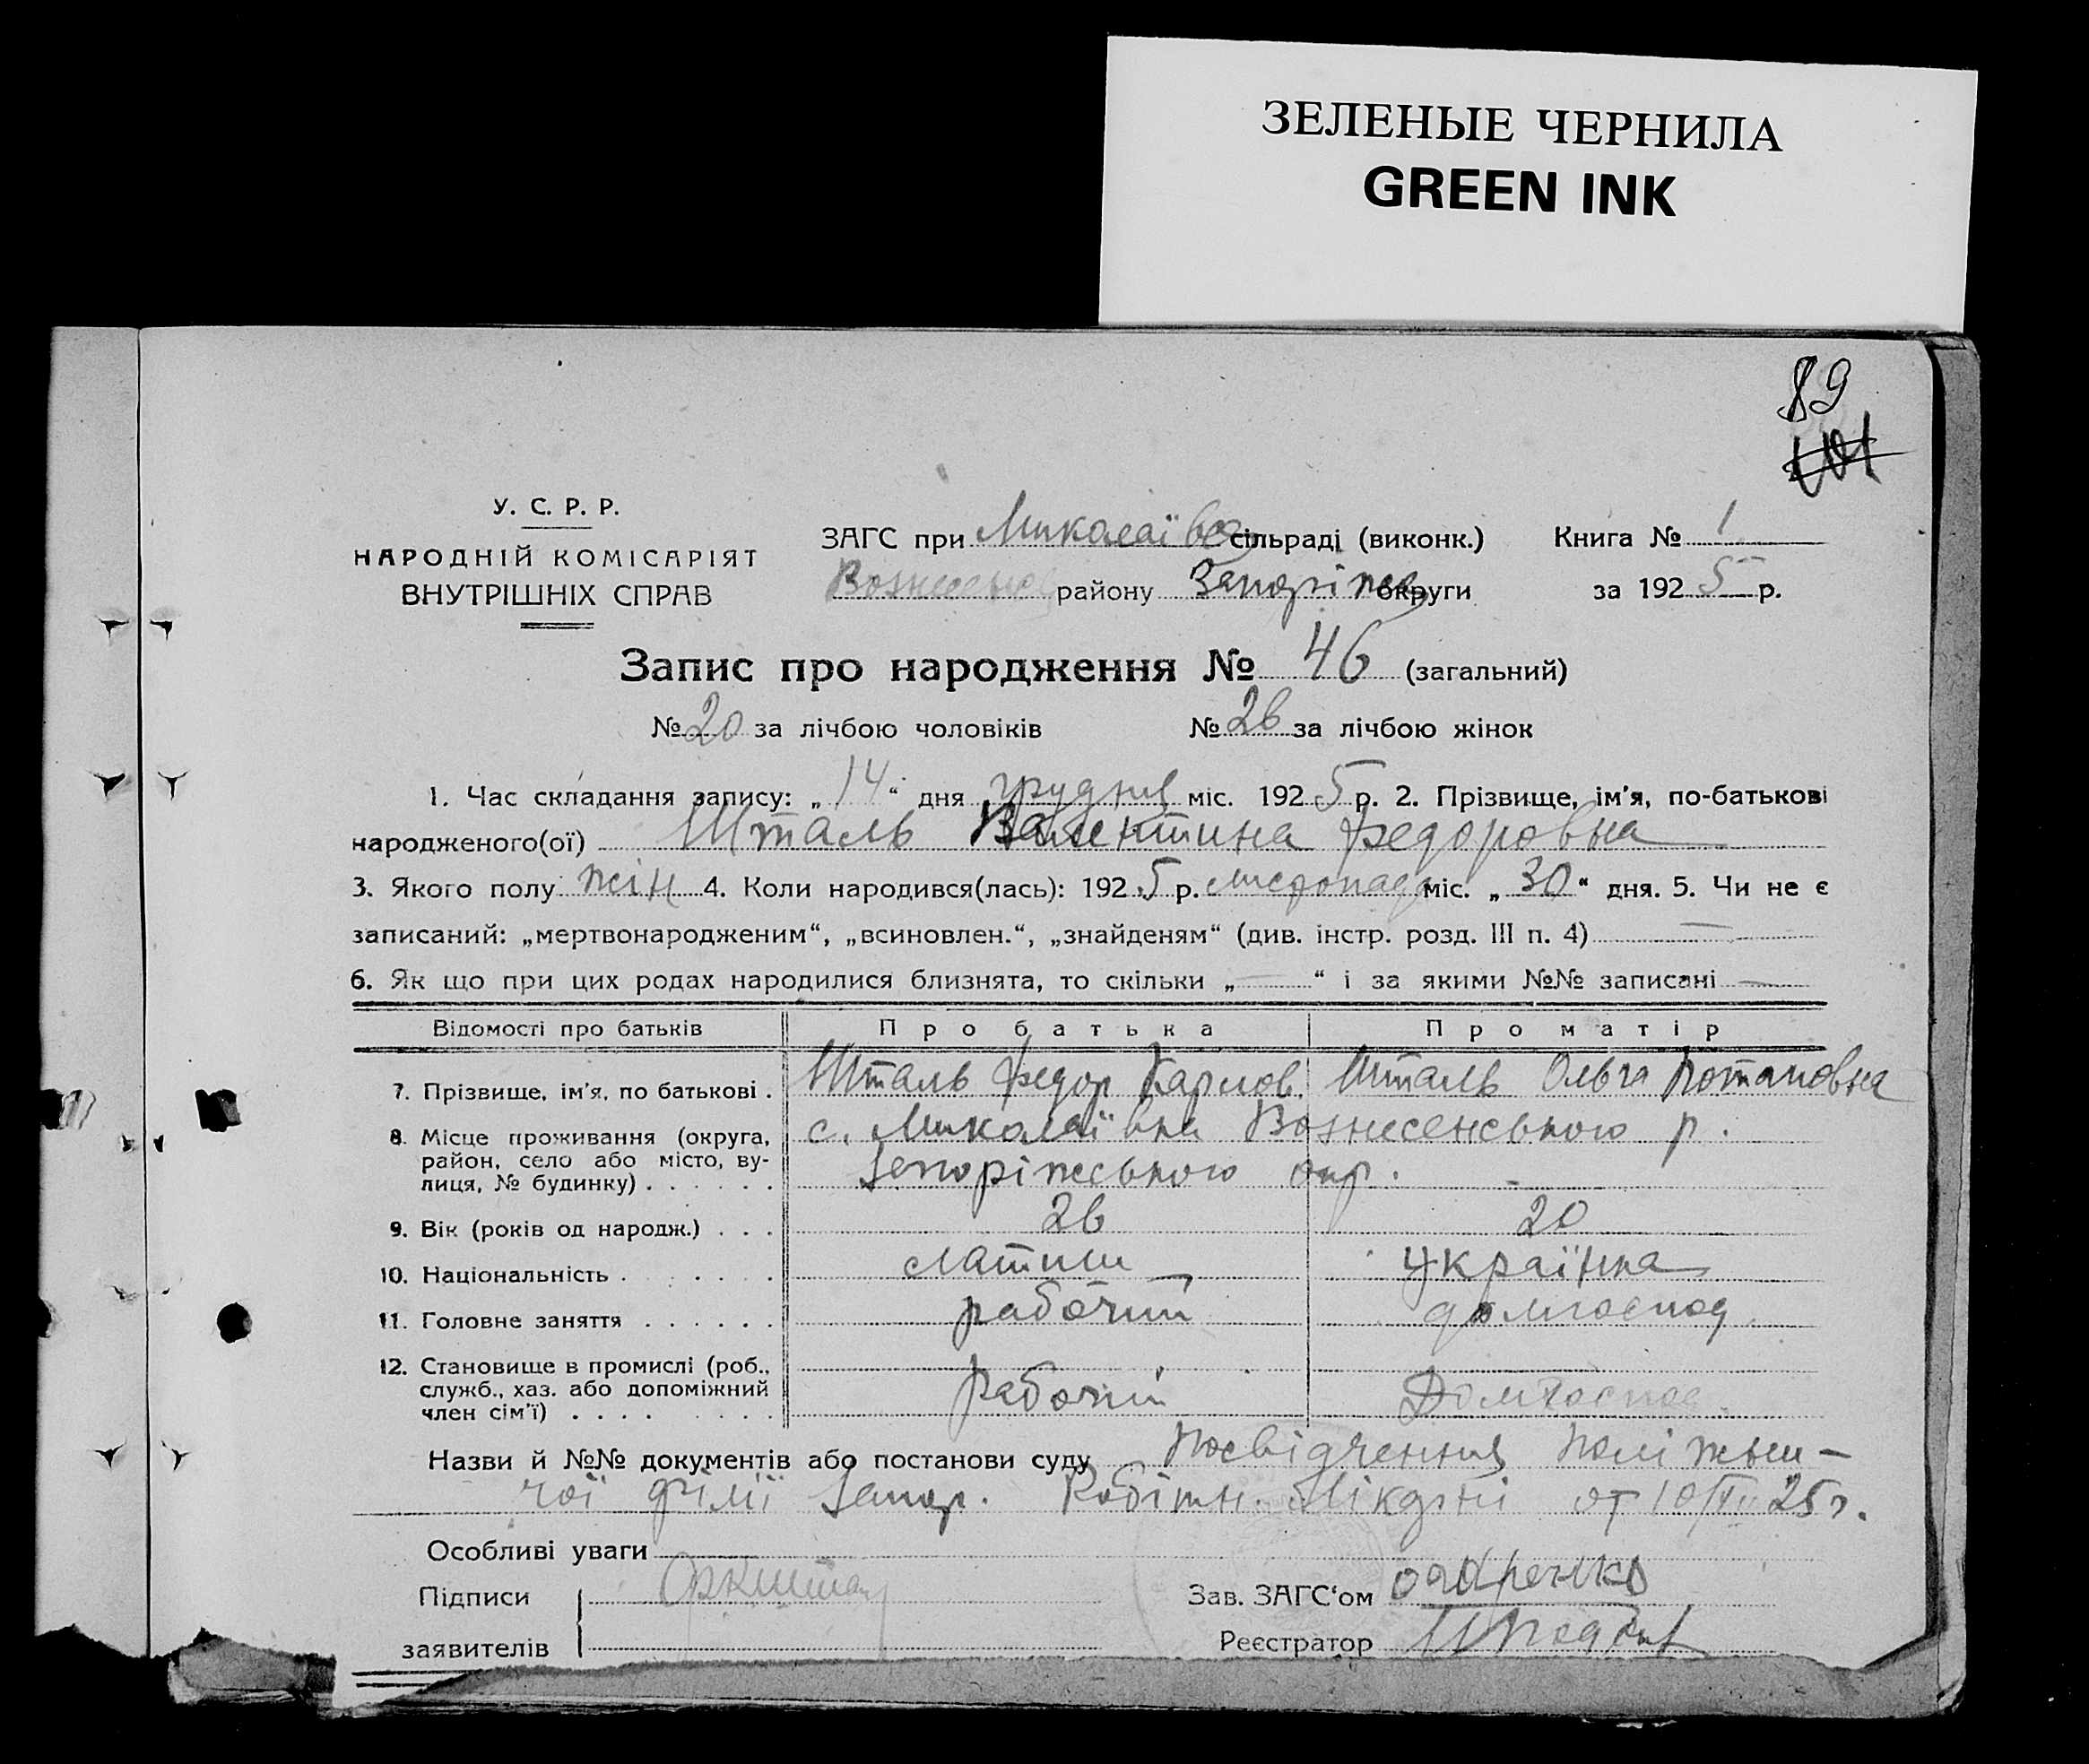 ЗЕЛЕНЫЕ ЧЕРНИЛА
GREEN INK
89
101
У. С. Р. Р.
НАРОДНІЙ КОМІСАРІЯТ
ВНУТРІШНІХ СПРАВ
ЗАГС при Миколаївск сільраді (виконк.) Книга № 1
Вознесенск району Запоріжск округи за 1925 р.
Запис про народження № 46 (загальний)
№ 20 за лічбою чоловіків № 26 за лічбою жінок
1. Час складання запису: „14“ дня грудня міс. 1925 р. 2. Прізвище, ім’я, по-батькові
народженого(ої) Шталь Валентина Федоровна
3. Якого полу жін 4. Коли народився(лась): 1925 р. листопада міс. „30“ дня. 5. Чи не є
записаний: „мертвонародженим“, „всиновлен.“, „знайденям“ (див. інстр. розд. III п. 4) —
6. Як що при цих родах народилися близнята, то скільки „—“ і за якими №№ записані —
Відомості про батьків Про батька Про матір
7. Прізвище, ім’я, по батькові . Шталь Федор Карлов. Шталь Ольга Потаповна
8. Місце проживання (округа, район, село або місто, вулиця, № будинку) . . . . . . с. Миколаївка Вознесенського р.
Запоріжського окр. -
9. Вік (років од народж.) . . . 26 20
10. Національність . . . . . латиш українка
11. Головне заняття . . . . . . рабочий домгоспод
12. Становище в промислі (роб., служб., хаз. або допоміжний член сім’ї) . . . . рабочий Домгоспод.
Назви й №№ документів або постанови суду Посвідчення поліжни-
чої філії Запор. Робітн. Лікарні от 10/XII 25 г.
Особливі уваги
Підписи
заявителів
Зав. ЗАГС‘ом
Реєстратор